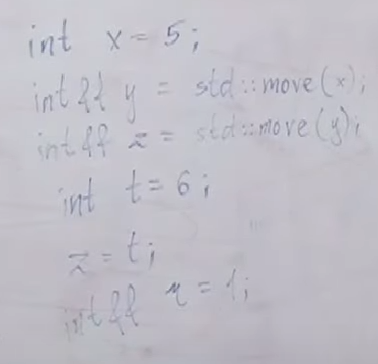 int x = 5;
int && y = std::move(x);
int && z = std::move(y);
int t = 6;
z = t;
int && u = 1;